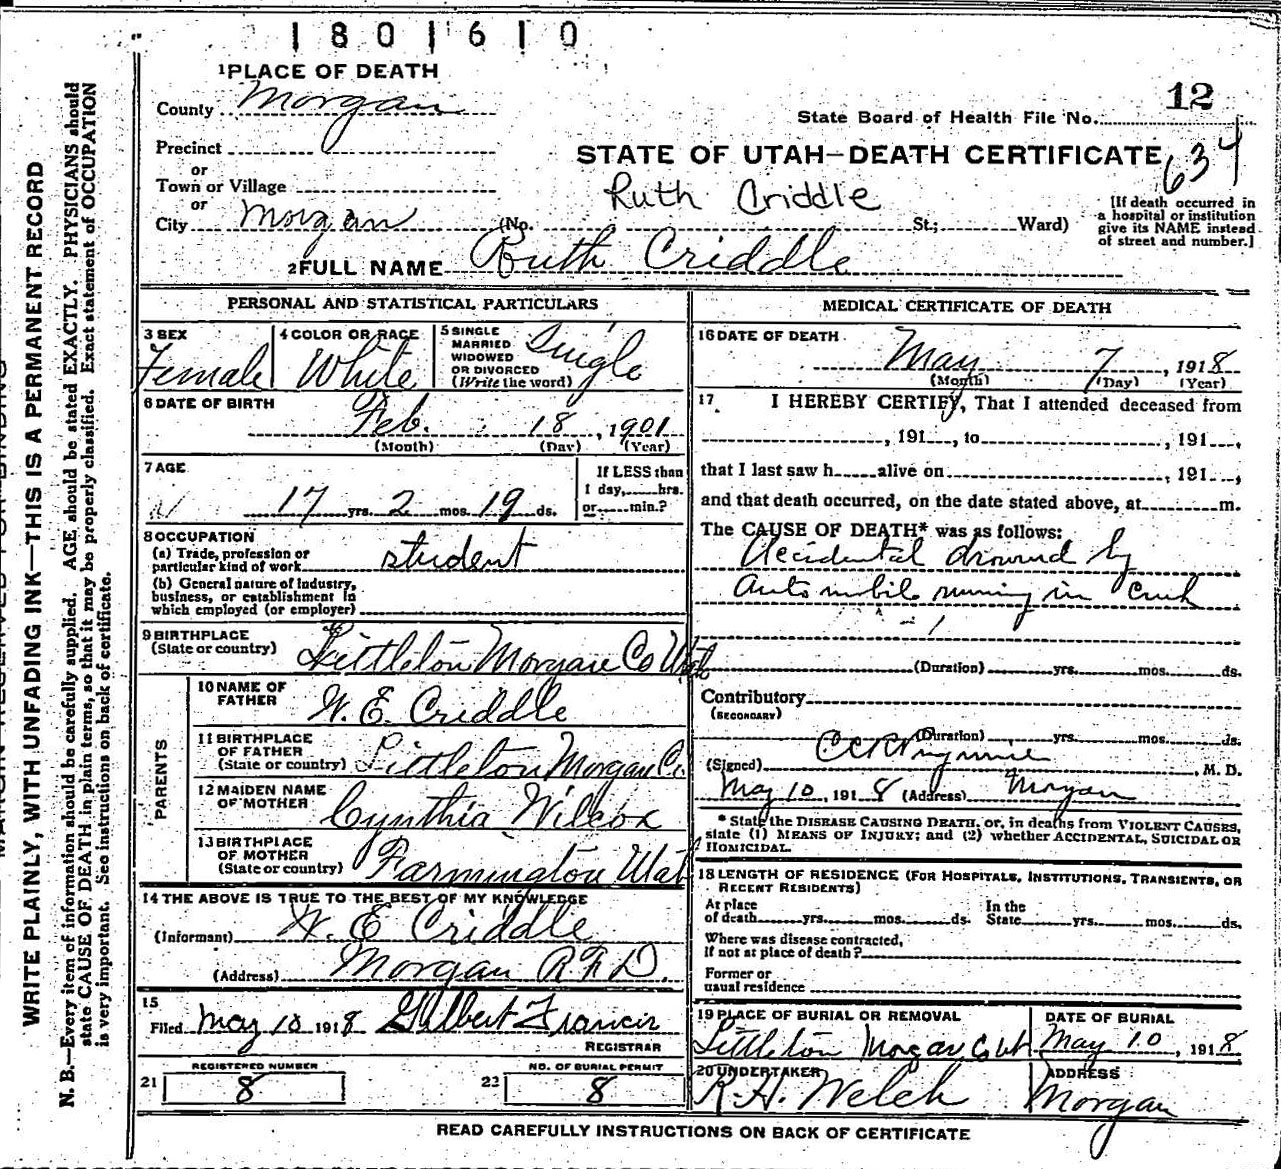 1801610
1 PLACE OF DEATH
County Morgan
12
State Board of Health File No.
634
Precinct
or
Town or Village
or
City Morgan
STATE OF UTAH—DEATH CERTIFICATE
Ruth Criddle
(No. St.; Ward)
[If death occurred in
a hospital or institution
give its NAME instead
of street and number.]
2 FULL NAME Ruth Criddle
PERSONAL AND STATISTICAL PARTICULARS
3 SEX
Female
4 COLOR OR RACE
White
5 SINGLE
MARRIED
WIDOWED
OR DIVORCED
(Write the word)
Single
6 DATE OF BIRTH
Feb. 18, 1901
(Month) (Day) (Year)
7 AGE
17 yrs. 2 mos. 19 ds.
If LESS than
1 day, hrs.
or min.?
8 OCCUPATION
(a) Trade, profession or
particular kind of work student
(b) General nature of industry,
business, or establishment in
which employed (or employer)
9 BIRTHPLACE
(State or country) Littleton Morgan Co Utah
PARENTS
10 NAME OF
FATHER W. E. Criddle
11 BIRTHPLACE
OF FATHER
(State or country) Littleton Morgan Co.
12 MAIDEN NAME
OF MOTHER Cynthia Wilcox
13 BIRTHPLACE
OF MOTHER
(State or country) Farmington Utah
14 THE ABOVE IS TRUE TO THE BEST OF MY KNOWLEDGE
(Informant) W. E Criddle
(Address) Morgan R.F.D.
15
Filed May 10 1918 Gilbert Francis
REGISTRAR
REGISTERED NUMBER
21 8
NO. OF BURIAL PERMIT
22 8
MEDICAL CERTIFICATE OF DEATH
16 DATE OF DEATH
May 7, 1918
(Month) (Day) (Year)
17 I HEREBY CERTIFY, That I attended deceased from
, 191 , to , 191 ,
that I last saw h alive on , 191 ,
and that death occurred, on the date stated above, at m.
The CAUSE OF DEATH* was as follows:
Accidental drownd by
Automobile running in creek
(Duration) yrs. mos. ds.
Contributory
(SECONDARY)
(Duration) yrs. mos. ds.
(Signed) , M. D.
May 10, 1918 (Address) Morgan
* State the DISEASE CAUSING DEATH, or, in deaths from VIOLENT CAUSES,
state (1) MEANS OF INJURY; and (2) whether ACCIDENTAL, SUICIDAL OR
HOMICIDAL.
18 LENGTH OF RESIDENCE (FOR HOSPITALS, INSTITUTIONS, TRANSIENTS, OR
RECENT RESIDENTS)
At place
of death yrs. mos. ds.
In the
State yrs. mos. ds.
Where was disease contracted,
if not at place of death?
Former or
usual residence
19 PLACE OF BURIAL OR REMOVAL
Littleton Morgan Co Ut
DATE OF BURIAL
May 10, 1918
20 UNDERTAKER
R. H. Welch
ADDRESS
Morgan
READ CAREFULLY INSTRUCTIONS ON BACK OF CERTIFICATE
WRITE PLAINLY, WITH UNFADING INK—THIS IS A PERMANENT RECORD
N. B.—Every item of information should be carefully supplied. AGE should be stated EXACTLY. PHYSICIANS should
state CAUSE OF DEATH in plain terms, so that it may be properly classified. Exact statement of OCCUPATION
is very important. See instructions on back of certificate.